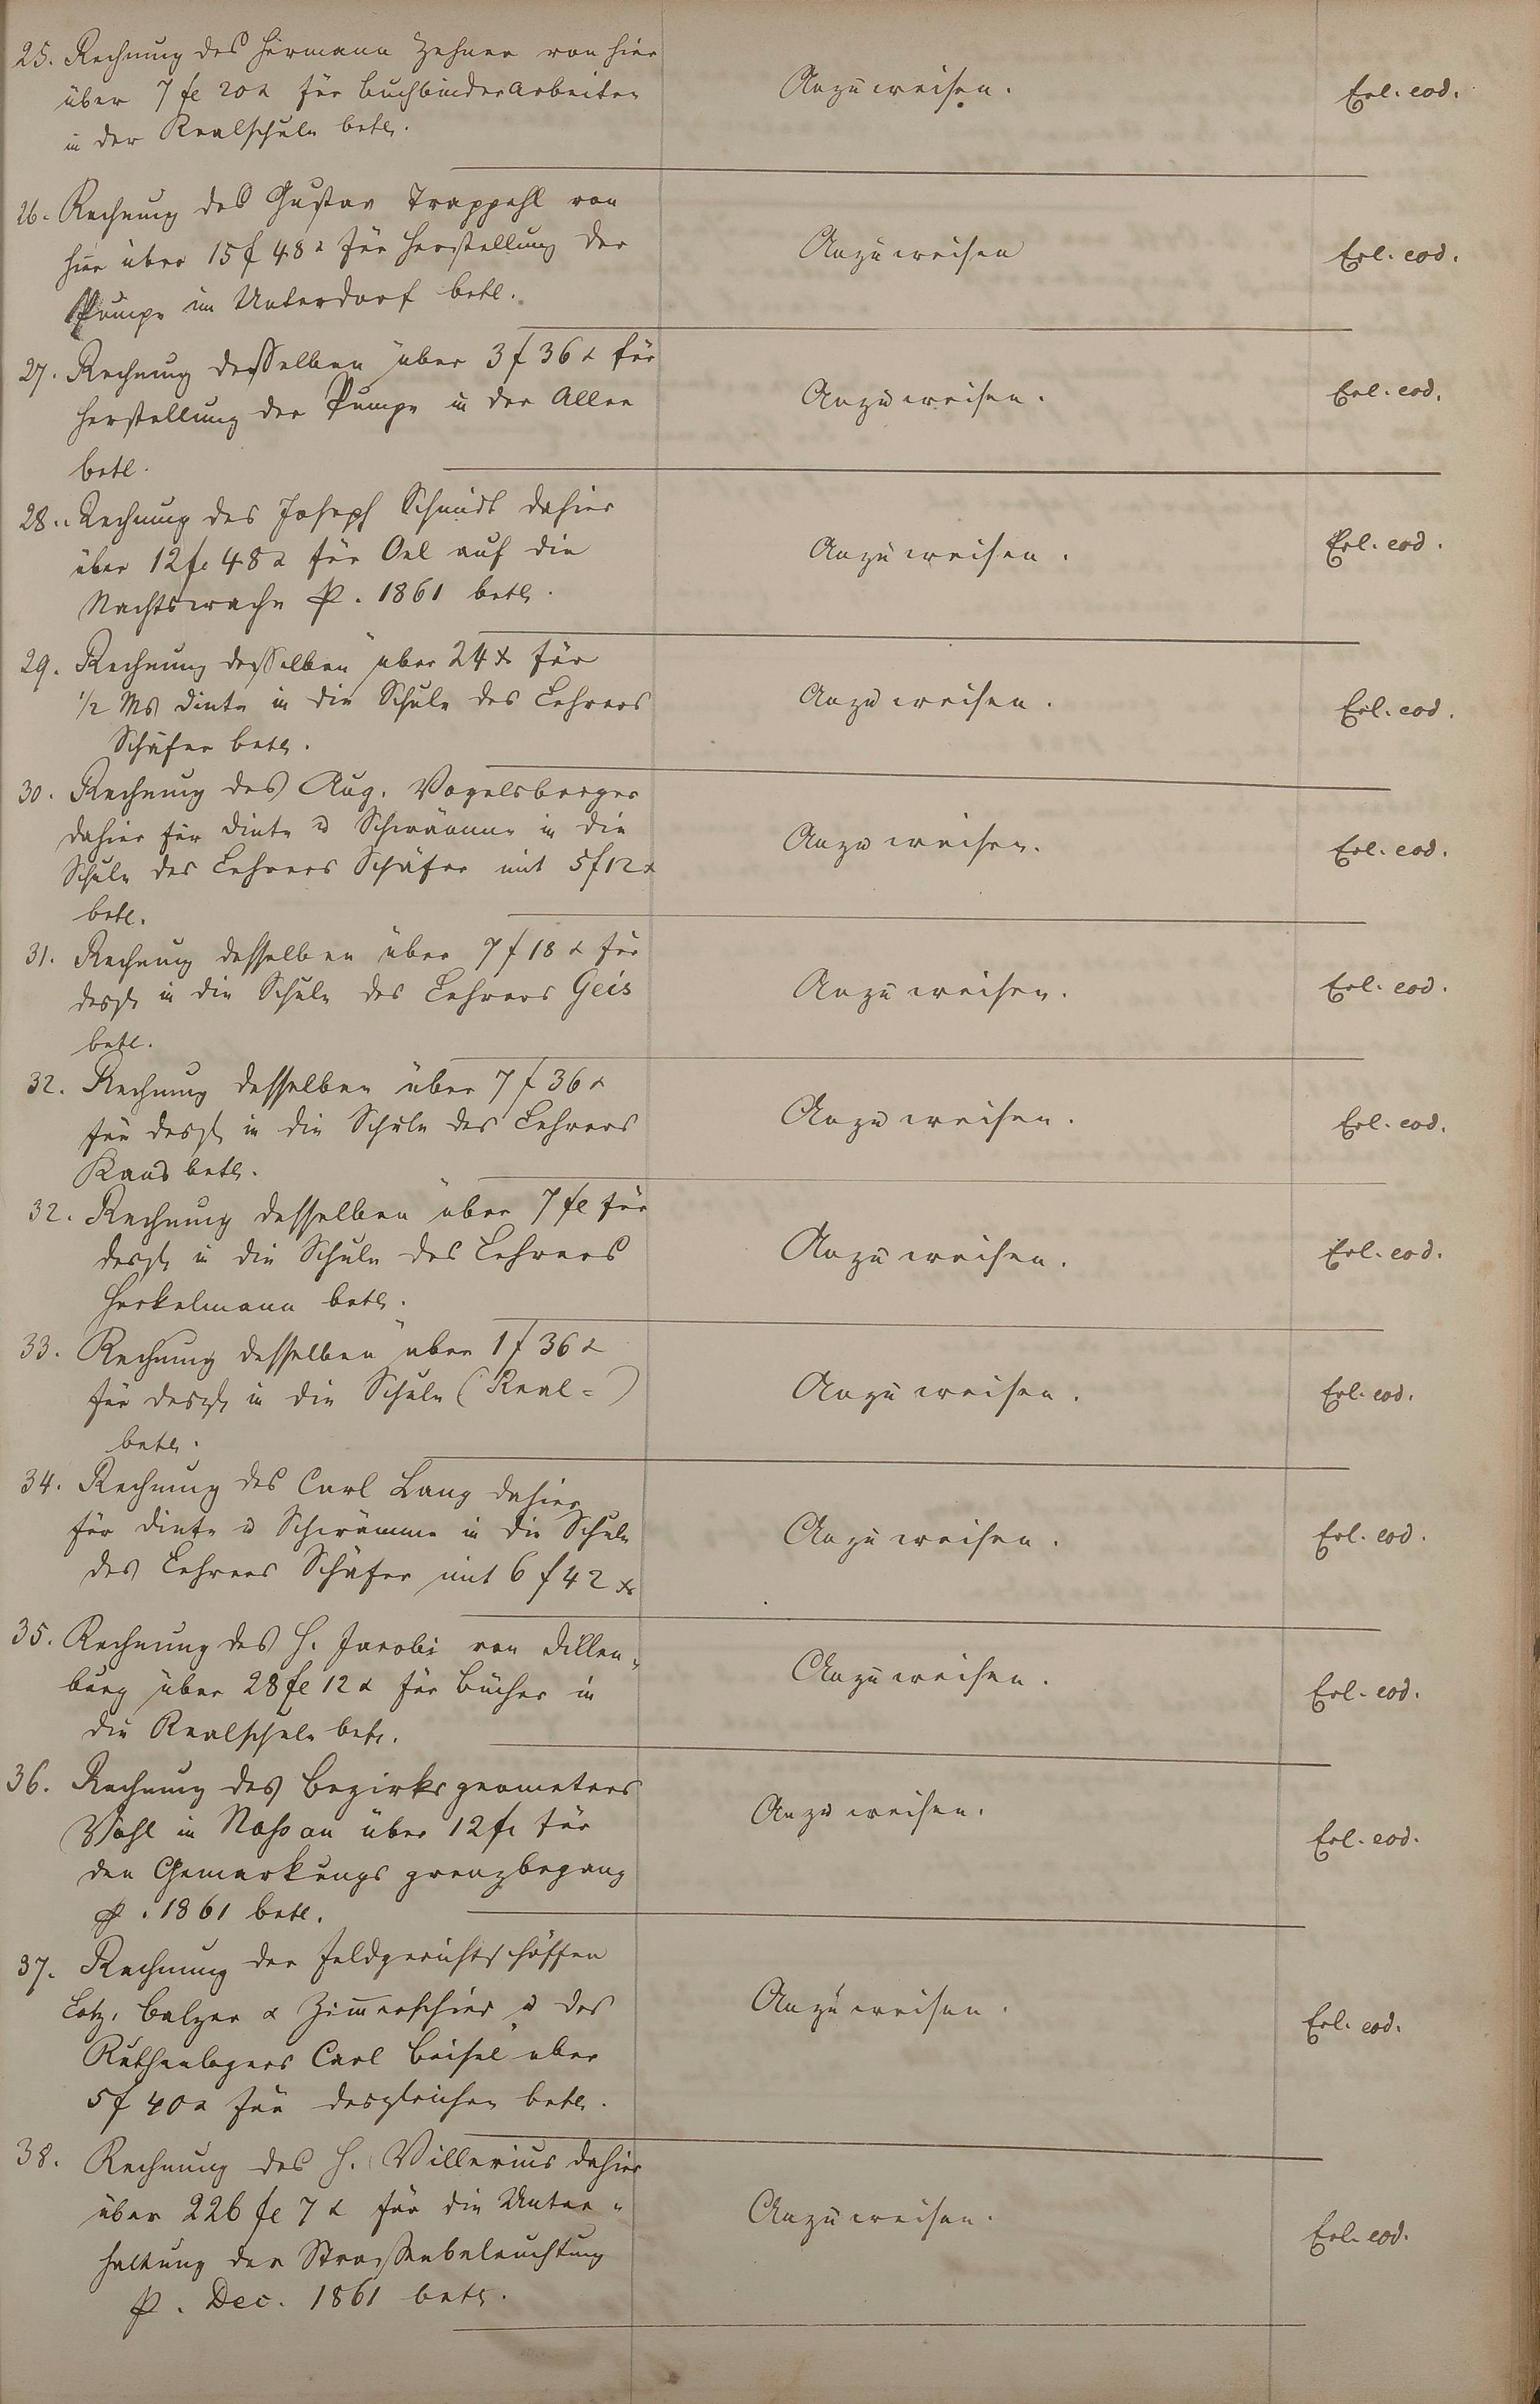 25. Rechnung des Hermann Zehner von hier
über 7 fl 20 x für Buchbinderarbeiten
in der Realschule betr.
Anzuweisen.
Erl. eod.
26. Rechnung des Gustav Trappehl von
hier über 15 f 48 x für Herstellung der
Pumpe im Unterdorf betr.
Anzuweisen
Erl. eod.
27. Rechnung desselben über 3 f 36 x für
Herstellung der Pumpe in der Allee
betr.
Anzuweisen.
Erl. eod.
28. Rechnung des Joseph Schmidt dahier
über 12 fl 48 x für Oel auf die
Nachtswache p. 1861 betr.
Anzuweisen.
Erl. eod.
29. Rechnung desselben über 24 x für
1/2 Ms Dinte in die Schule des Lehrers
Schäfer betr.
Anzuweisen.
Erl. eod.
30. Rechnung des Aug. Vogelsberger
dahier für Dinte u Schwämme in die
Schule des Lehrers Schäfer mit 5 f 12 x
betr.
Anzuweisen.
Erl. eod.
31. Rechnung desselben über 7 f 18 x für
desgl. in die Schule des Lehrers Geis
betr.
Anzuweisen.
Erl. eod.
32. Rechnung desselben über 7 f 36 x
für desgl. in die Schule des Lehrers
Kaus betr.
Anzuweisen.
Erl. eod.
32. Rechnung desselben über 7 fl für
desgl. in die Schule des Lehrers
Herkelmann betr.
Anzuweisen.
Erl. eod.
33. Rechnung desselben über 1 f 36 x
für desgl. in die Schule (Real=)
betr.
Anzuweisen.
Erl. eod.
34. Rechnung des Carl Lang dahier
für Dinte u Schwämme in die Schule
des Lehrers Schäfer mit 6 f 42 x
Anzuweisen.
Erl. eod.
35. Rechnung des H. Jacobi von Dillen„
burg über 28 fl 12 x für Bücher in
die Realschule betr.
Anzuweisen.
Erl. eod.
36. Rechnung des Bezirksgeometers
Wohl in Nassau über 12 fl für
den Gemarkungsgrenzbegang
p. 1861 betr.
Anzuweisen.
Erl. eod.
37. Rechnung der Feldgerichtschöffen
Lotz, Balzer & Zimerschied u des
Ruthenlegers Carl Beisel über
5 f 40 x für desgleichen betr.
Anzuweisen.
Erl. eod.
38. Rechnung des H. Villerius dahier
über 226 fl 7 x für die Unter„
haltung der Strassenbeleuchtung
p. Dec. 1861 betr.
Anzuweisen.
Erl. eod.